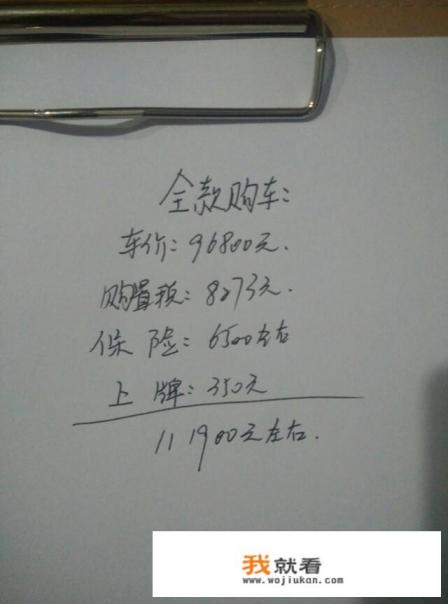 全款购车：
车价：96800元.
购置税：8273元.
保险：6500左右
上牌：350元
111900元左右.
我就看
www.wojiukan.com